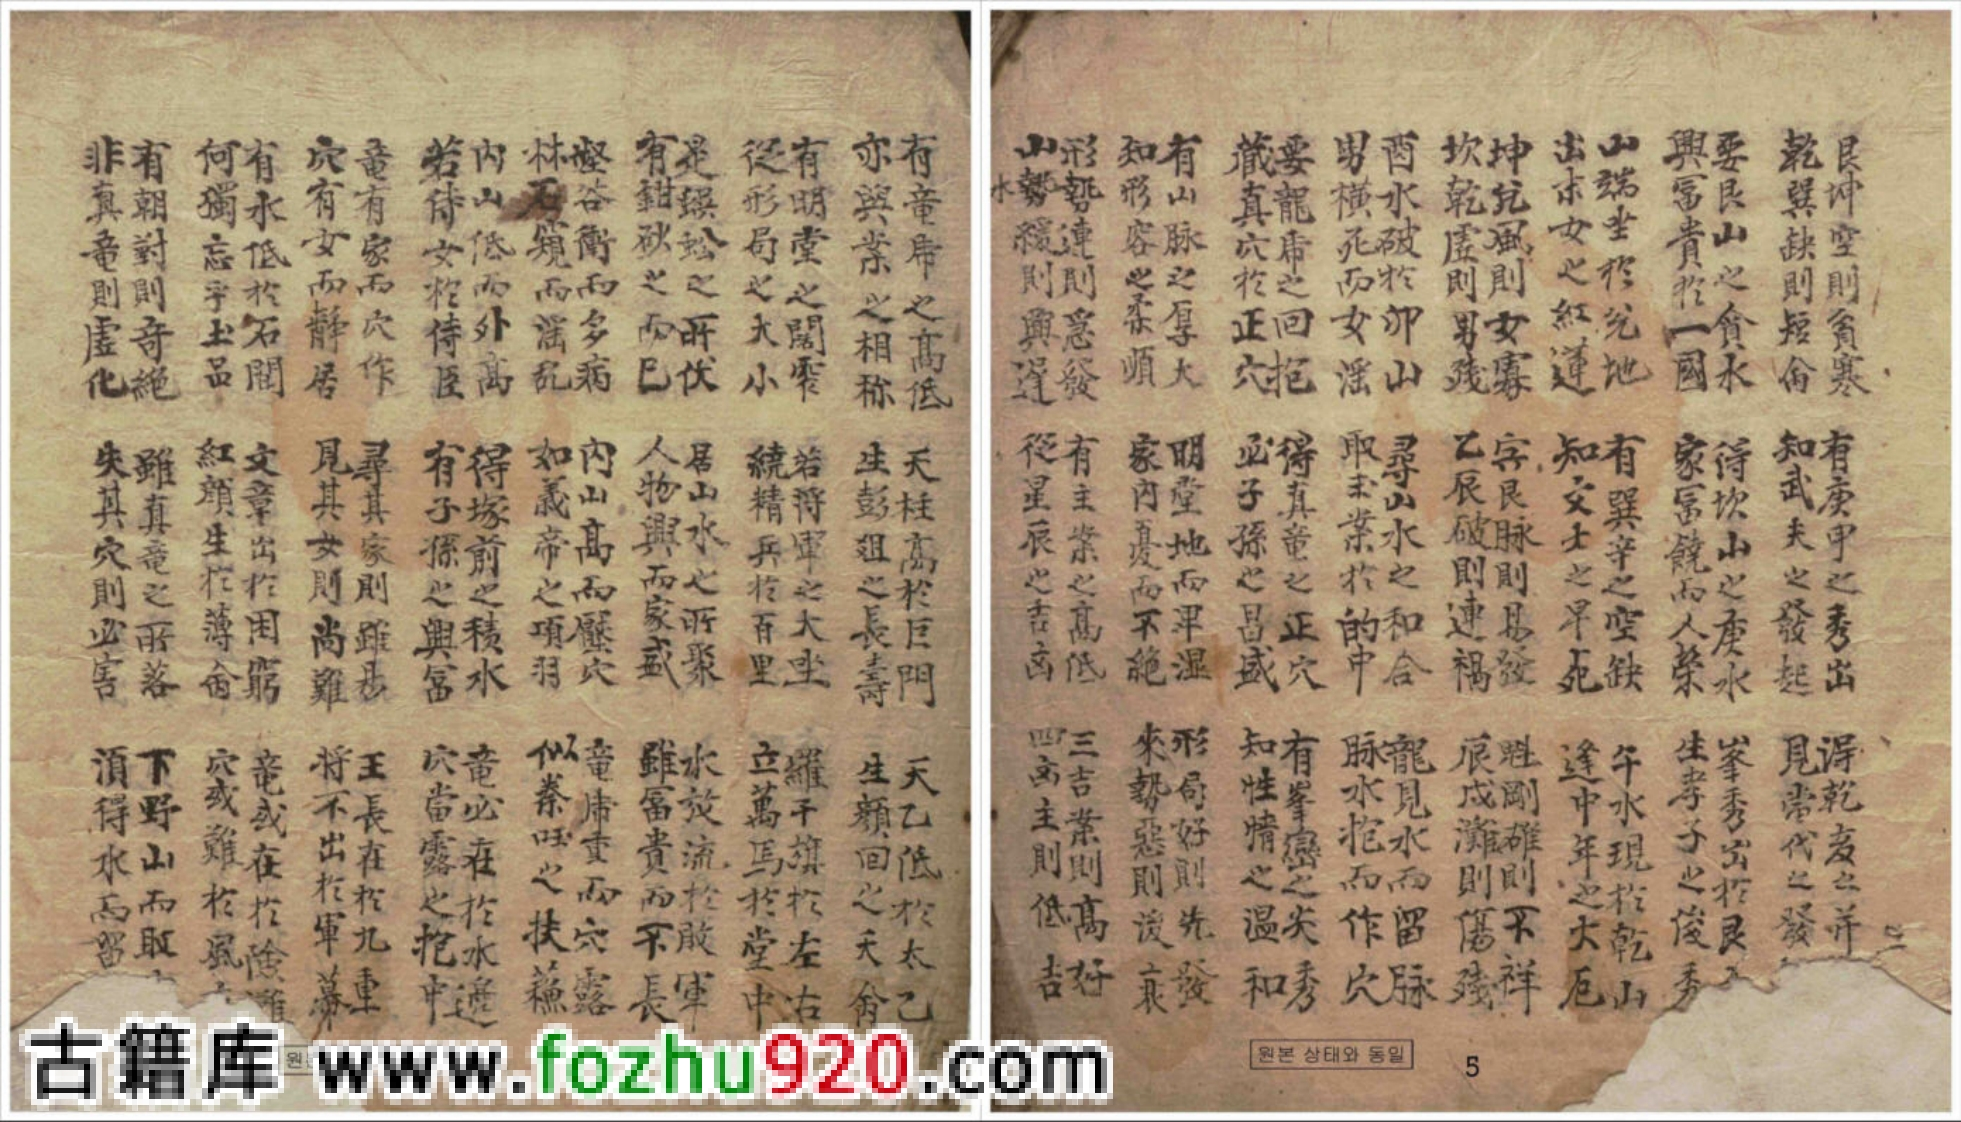 艮坤空則貧寒
乾巽缺則短命
有庚甲之秀出
知武夫之發起
得乾亥之并
見當代之發
要艮山之貪水
興冨貴於一國
得坎山之庚水
家冨饒而人榮
峯秀出於艮
生孝子之俊秀
山端坐於兌地
出末女之紅蓮
有巽辛之空缺
知文士之早死
午水現於乾山
逢中年之大厄
坤兌風則女寡
坎乾虛則男殘
艮脉則易發
乙辰破則連禍
魁剛確則不祥
辰戌灘則傷殘
酉水破於卯山
男橫死而女淫
尋山水之和合
取主業於的中
龍見水而留脉
脉水抱而作穴
要龍席之回抱
蔵真穴於正穴
得真竜之正穴
必子孫之昌盛
有峯巒之尖秀
知性情之温和
有山脉之厚大
知形容之柔順
明堂地而畢濕
家內憂而不絶
形局好則先發
來勢惡則後衰
形勢連則急發
山勢緩則興遲
水
有主案之高低
從星辰之吉凶
三吉案則高好
四凶主則低吉
原본 상태와 동일
5
有竜席之高低
亦與案之相称
天柱高於巨門
生彭祖之長壽
天乙低於太乙
生顏回之夭命
有明堂之闊窄
從形局之大小
若將軍之大坐
繞精兵於百里
羅千旗於左右
立萬馬於堂中
是蜈蚣之所伏
有鉗砂之而已
居山水之所聚
人物興而家盛
水放流於敗軍
雖冨貴而不長
壑谷衝而多病
林石窺而淫乱
內山高而壓穴
如義帝之項羽
竜席重而穴露
似秦旺之扶蘇
內山低而外高
若侍女於侍臣
得塚前之積水
有子孫之興冨
竜必在於水邊
穴當露之抱中
竜有家而穴作
穴有女而靜居
尋其家則雖易
見其女則尚難
王長在於九重
將不出於軍幕
有水低於石閣
何獨忘乎土品
文章出於困窮
紅顏生於薄命
竜或在於險難
穴或難於風
有朝對則奇絕
非真竜則虛化
雖真竜之所落
失其穴則必害
下野山而取
須得水而留
古籍库 www.fozhu920.com